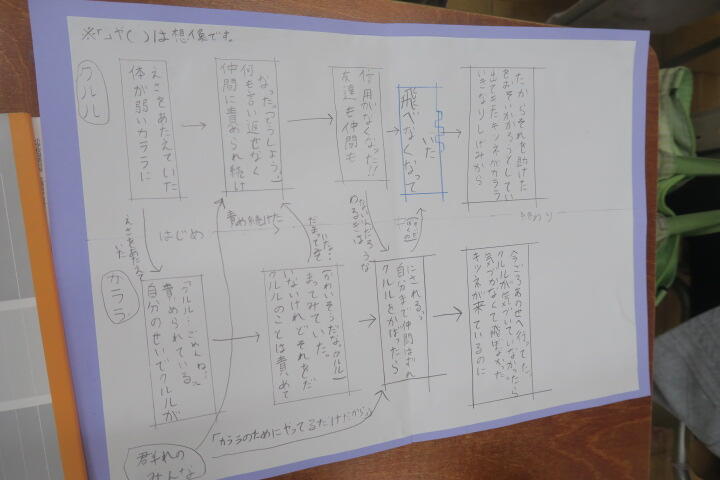 ※「」や( )は想像です。
クルル
体が弱いカララに
えさをあたえていた
仲間に責められ続け
何も言い返せなく
なった(どうしよう…)
友達も仲間も
信用がなくなった!!
飛べなくなって
いた
いきなりしげみから
出てきたキツネがカララ
をおそいかかろうとしてい
たからそれを助けた
えさをあたえて
いた
はじめ
責め続けた
だまって
いた…
わるぎは
ないんだろうな
おわり
カララ
自分のせいでクルルが
責められている。
「クルル…ごめんね。」
クルルのことは責めて
いないけれどそれをだ
まってみていた。
(かわいそうだな、クルル)
クルルをかばったら
自分まで仲間はずれ
にされる。
キツネが来ているのに
気づかなくて飛ばなかった。
クルルが気づいていなかったら
今ごろあの世へ行ってた。
「カララのためにやってるだけだから」
群れの
みんな